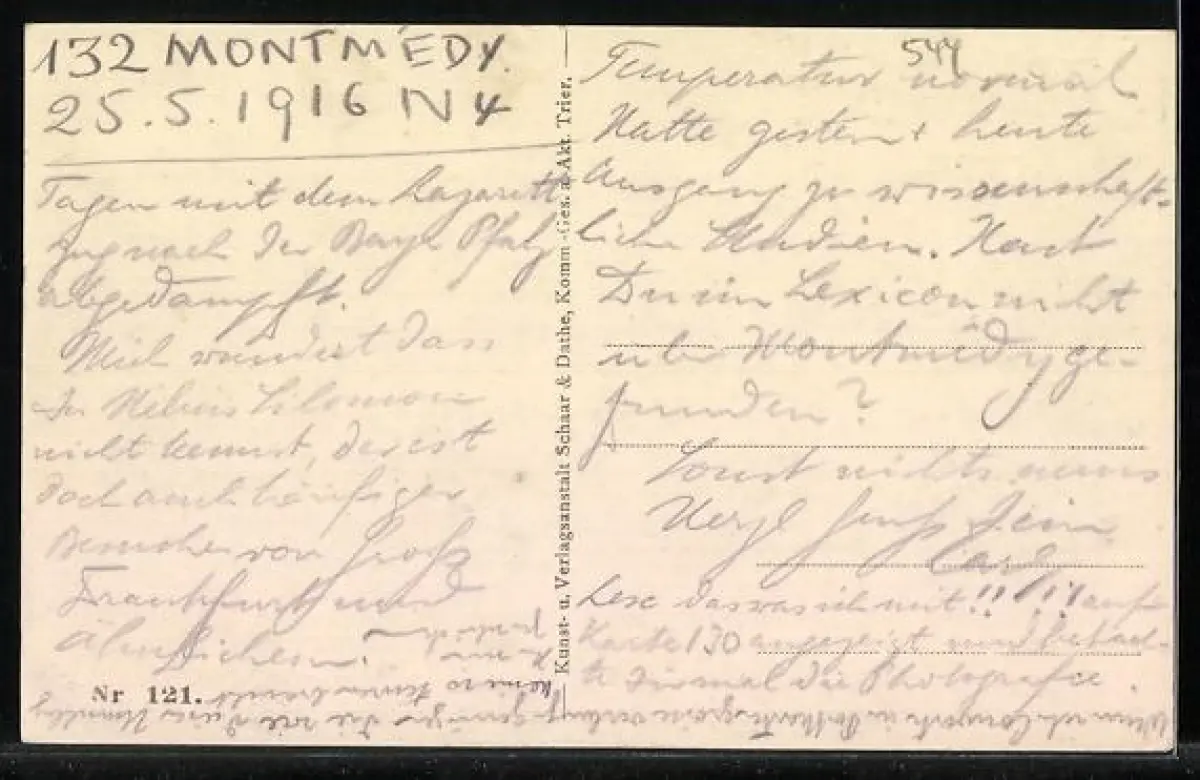 132 MONTMÉDY.
25.5.1916 N4
Tagen mit dem Lazarett
zug nach der Bayr Pfalz
abgedampft.
Mich wundert dass
nicht kennst, der ist
doch auch häufiger
Besucher von Gross
Frankfurt und
ähnlichem.
Nr 121.
Kunst- u. Verlagsanstalt Schaar & Dathe, Komm.-Ges. a. Akt. Trier.
544
Temperatur normal
Hatte gestern & heute
Ausgang zu wissenschaft-
lichen Studien. Hast
Du im Lexicon nicht
über Montmédy ge-
funden?
Sonst nichts neues
Herzl Gruss Dein
Carl
Lese das was ich mit !! !! auf
Karte 130 angezeigt und betrach-
te Dir mal die Photografie.